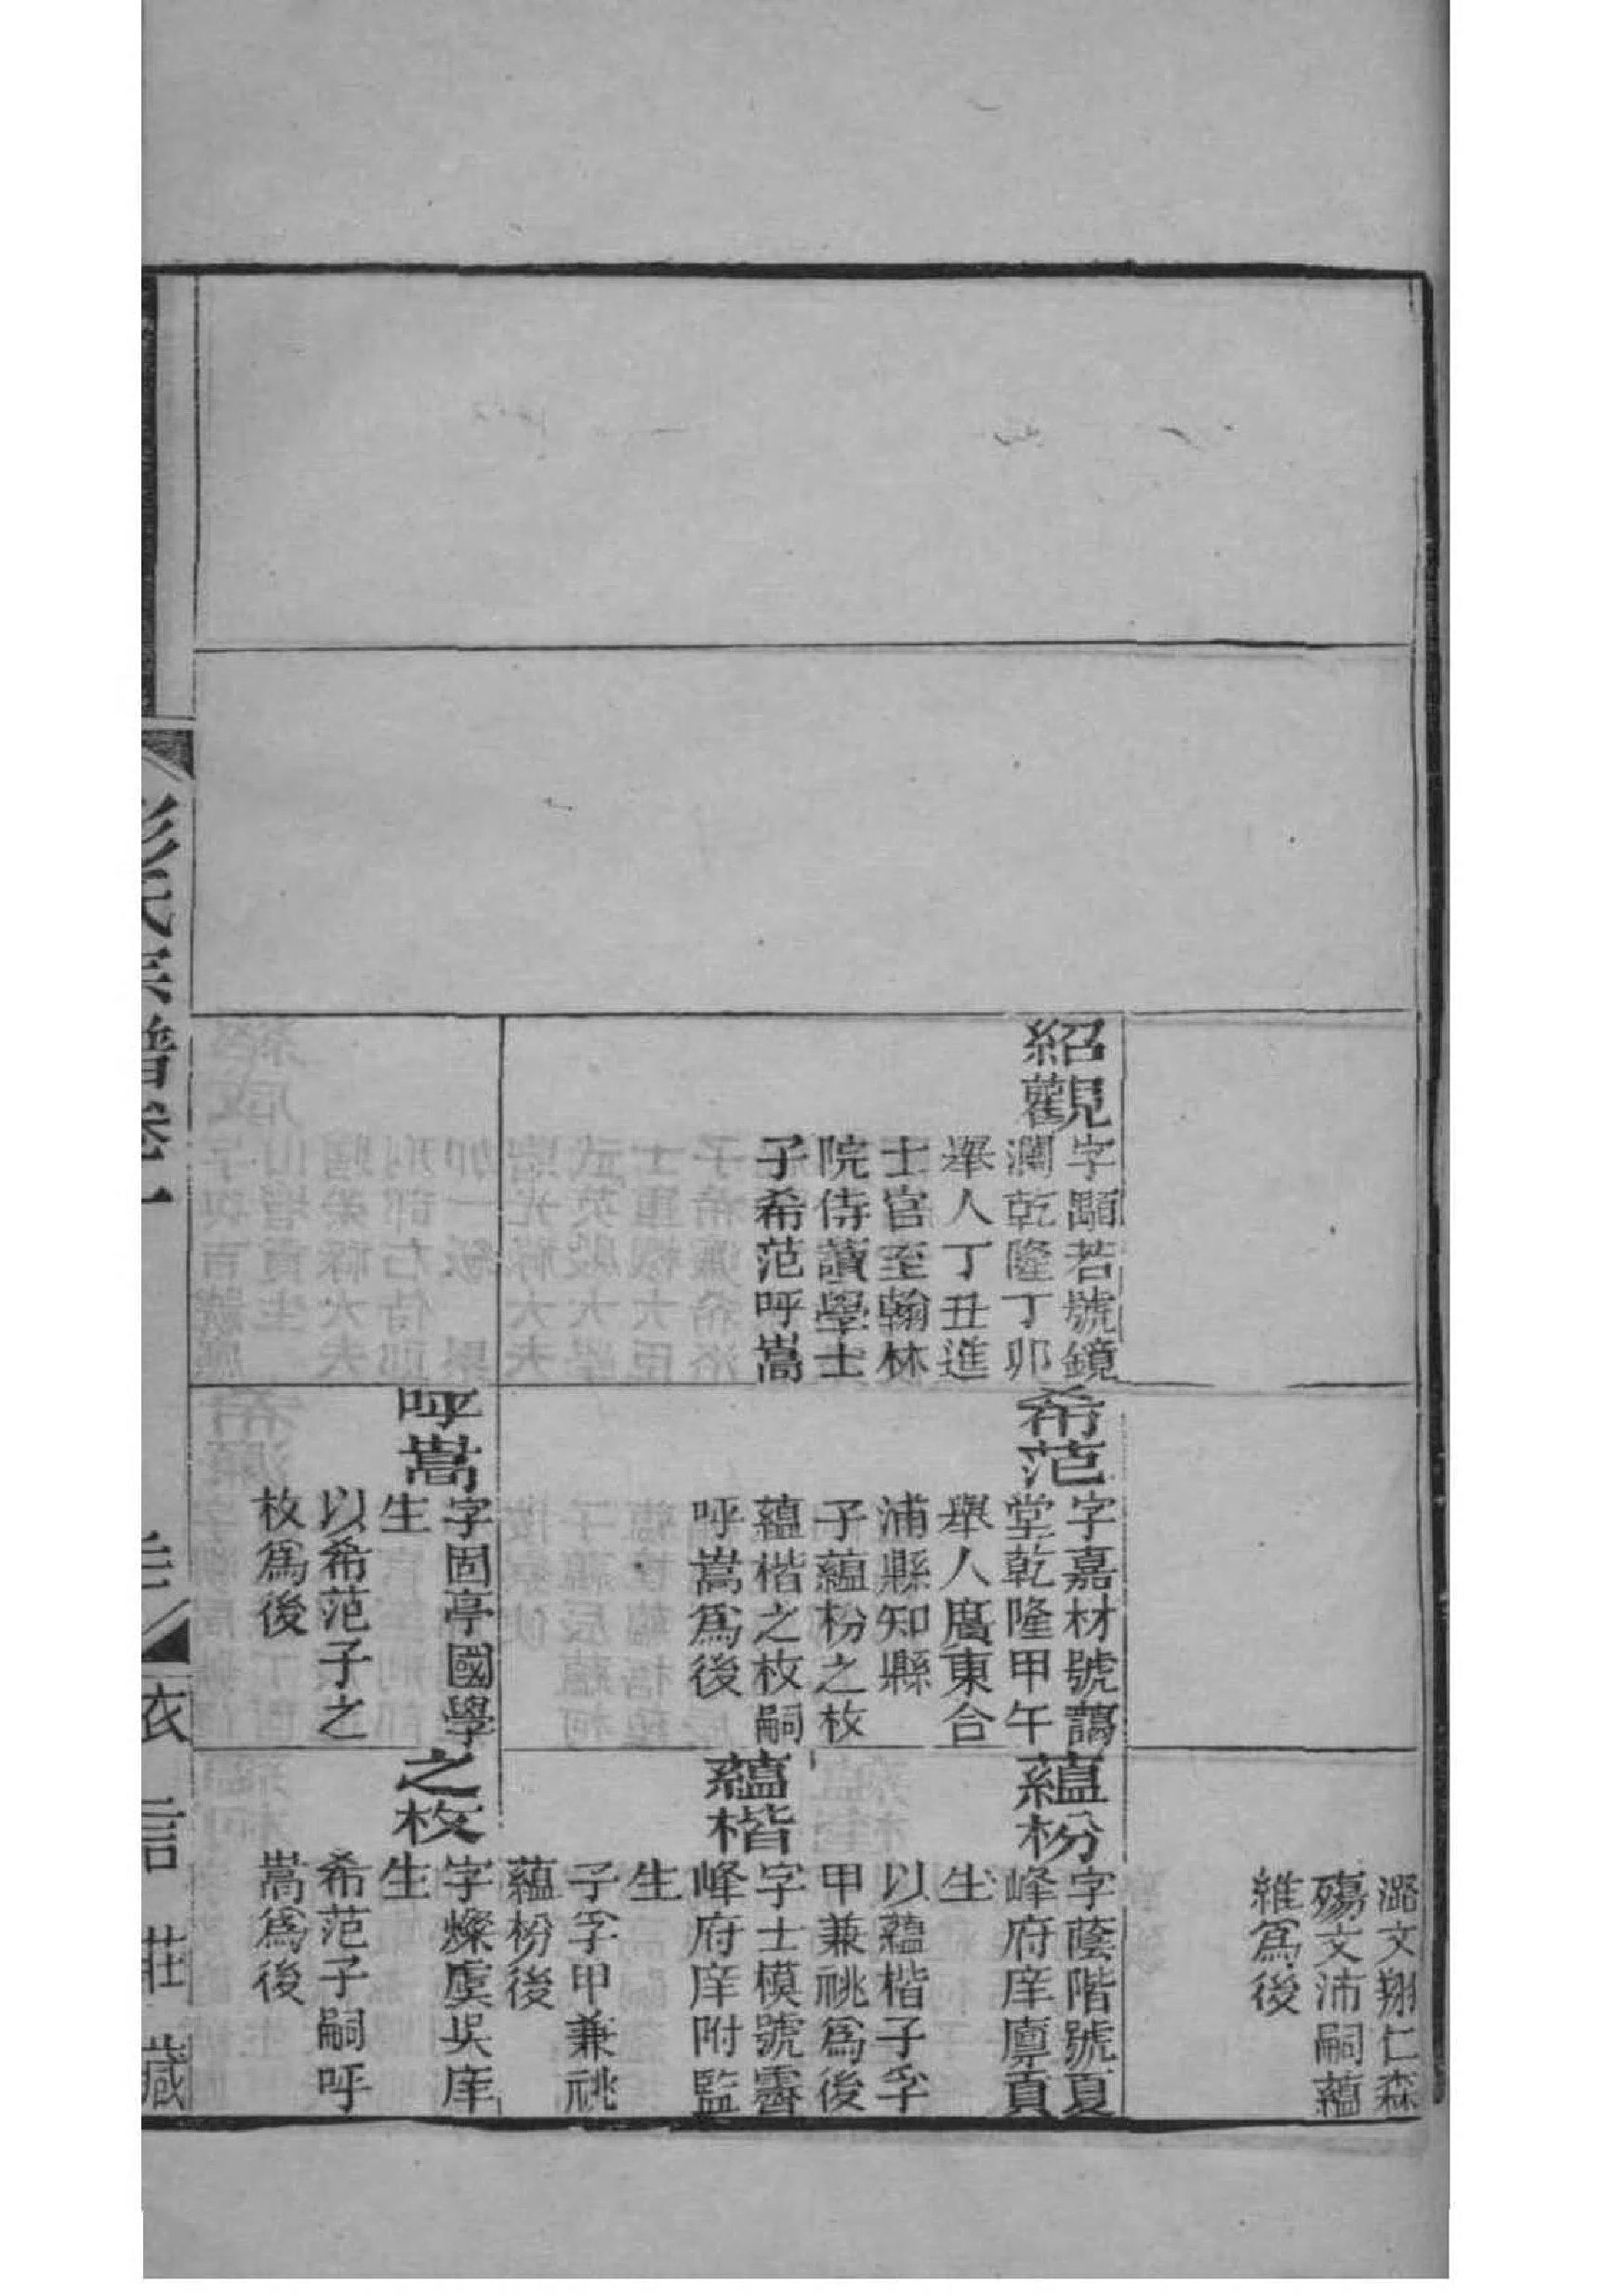 紹觀
字顒若號鏡
瀾乾隆丁卯
舉人丁丑進
士官至翰林
院侍讀學士
子希范呼嵩
希范
字嘉材號藹
堂乾隆甲午
舉人廣東合
浦縣知縣
子蘊枌之枚
蘊楷之枚嗣
呼嵩為後
呼嵩
字固亭國學
生
以希范子之
枚為後
澨文翔仁森
殤文沛嗣蘊
維為後
蘊枌
字蔭階號夏
峰府庠廩貢
生
以蘊楷子孚
甲兼祧為後
蘊楷
字士模號霽
峰府庠附監
生
子孚甲兼祧
蘊枌後
之枚
字燦虞吳庠
生
希范子嗣呼
嵩為後
彭氏宗譜卷一
衣言莊藏